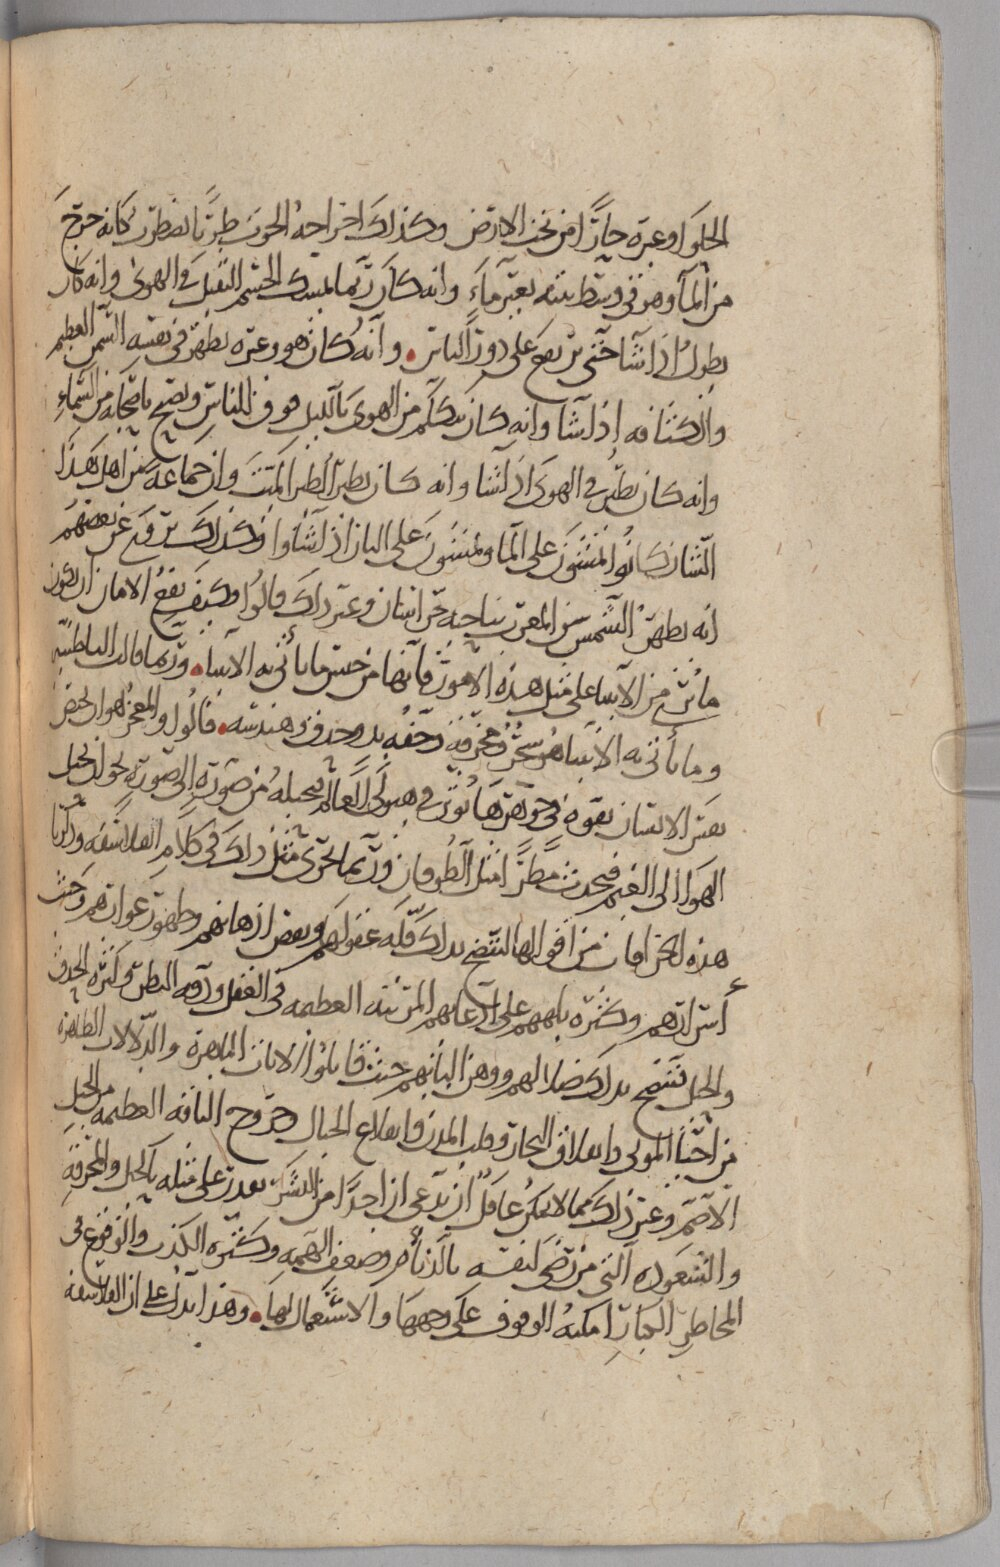 الحلوا وغيره حارًّا من تحت الارض وكذلك اخراجه الحوت طريًّا يضطرب كانه خرج
من المآ وهو في وسط بيته بغير مآء وانه كان ربما يمسك الجسم الثقيل في الهوى وانه كان
يطول اذا شآ حتى يرتفع على دور الناس وانه كان هو وغيره يظهر في نفسه السمن العظيم
والكثافه اذا شا وانه كان يتكلم من الهوى بالليل فوق الناس ويصيح باصحابه من السماء
وانه كان يطير في الهوى اذا شا وانه كان يطير الطير الميت وان جماعة من اهل هذا
الشان كانوا يمشون على الما ويمشون على النار اذا شاوا وكذلك يرفع عن بعضهم
انه يظهر الشمس من المغرب بناحية خراسان وغير ذلك قالوا وكيف يقع الامان ان يكون
ما يرى من الانبيا على مثل هذه الامور فانها من جنس ما يأتي به الانبيا وربما قالت الباطنية
وما يأتي به الانبيا هو سحر ومخرقة وخفة يد وحذق وهندسه قالوا والمعجز هو ان يختص
بعض الانسان بقوة في جوهرها تؤثر في هيولى العالم فيحيله من صورة الى صورة نحو ان يحيل
الهوا الى الغيم فيحدث مطرًا مثل الطوفان وربما يجرى مثل ذلك في كلام الفلاسفه واكثر ما
هذه الخرافات من اقوالها لتتضح بذلك قلة عقولهم وبعض اذهانهم وظهور عوارهم وخبث
أسرارهم وكثرة بلههم على ادعايهم المرتبه العظيمه في العقل ودقه النظر وكثرة الحذق
والحيل فتتضح بذلك ضلالهم ووهن البابهم حيث قابلوا الايات الباهره والدلالات الظاهره
من احيآ الموتى وانفلاق البحار وقلب المدن واقلاع الجبال وخروج الناقه العظيمه من الجبل
الاصم وغير ذلك مما لا يمكن عاقل ان يدعى ان احدًا من البشر يقدر على مثله بالحيل والمخرقة
والشعوذه التي من رضى لنفسه بالدناءه وضعف الهمه وكثره الكذب والوقوع في
المخاطر الكبار امكنه الوقوف على وجهها والاستعمال لها وهذا يدل على ان الفلاسفه